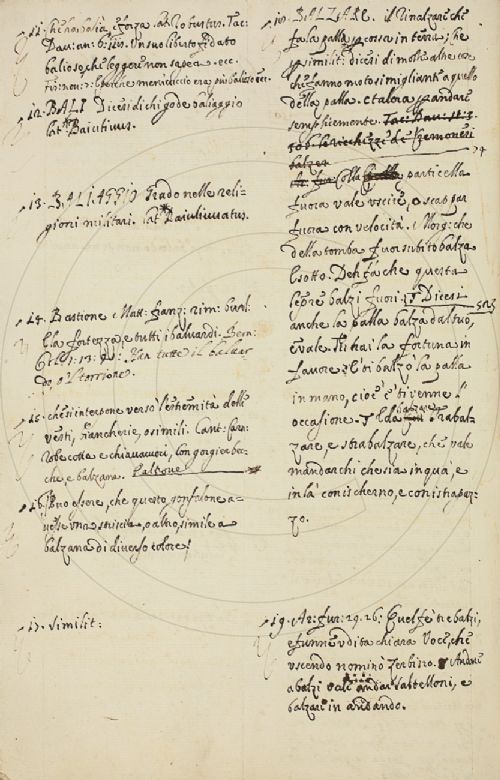 11. Che ha balìa, e forza. lat. Robustus. Tac:
Dav: an: Un suo liberto fidato
balioso, che leggere non sapea. ecc.
12. BALÌ Dicesi di chi gode baliaggio
lat. Baiulivus.
13. BALIAGGIO Grado nelle reli=
gioni militari. lat. Baiulivatus.
14. Bastione. Matt: Franz: rim: burl:
E la fortezza, e tutti i baluardi. Bern:
Orl: 1: 13: Fan tutte il baluar
do, o 'l torrione.
15. che si interpone verso l'estremità delle
vesti, biancherie, o simili. Cant: Carn:
con gorgiere bian
che, e balzana.
16. Può essere, che questo gonfalone a=
vesse una striscia, o altro, simile a
balzana di diverso colore.
17. Similit:
18. BALZARE. il rinalzare che
fa la palla percossa in terra; che
per similit: dicesi di molte altre cose
che fanno moto simigliante a quello
della palla. e talora per andare
semplicemente. Tac: Dav: st: 3:
le ricchezze de' Cremonesi
balzer
Colla particella
fuora vale uscire, o scappar
fuora con velocità. Morg: che
della tomba fuor subito balza
Esotto. Deh fa che questa
lepre balzi fuori. Dicesi
anche la palla balza dal tuo,
e vale. Tu hai la fortuna in
favore. E 'l ti balzò la palla
in mano, cioè è ti venne l'
occasione. E da balzare Trabal=
zare, e strabalzare, che vale
mandarchi che sia in qua, e
in là con ischerno, e con istrapaz=
zo.
19. Ar: fur: 29. 26: Quel fè tre balzi,
e funne udita chiara Voce, che
uscendo nominò Zerbino. Andare
a balzi vale andar balzelloni, e
balzare in andando.